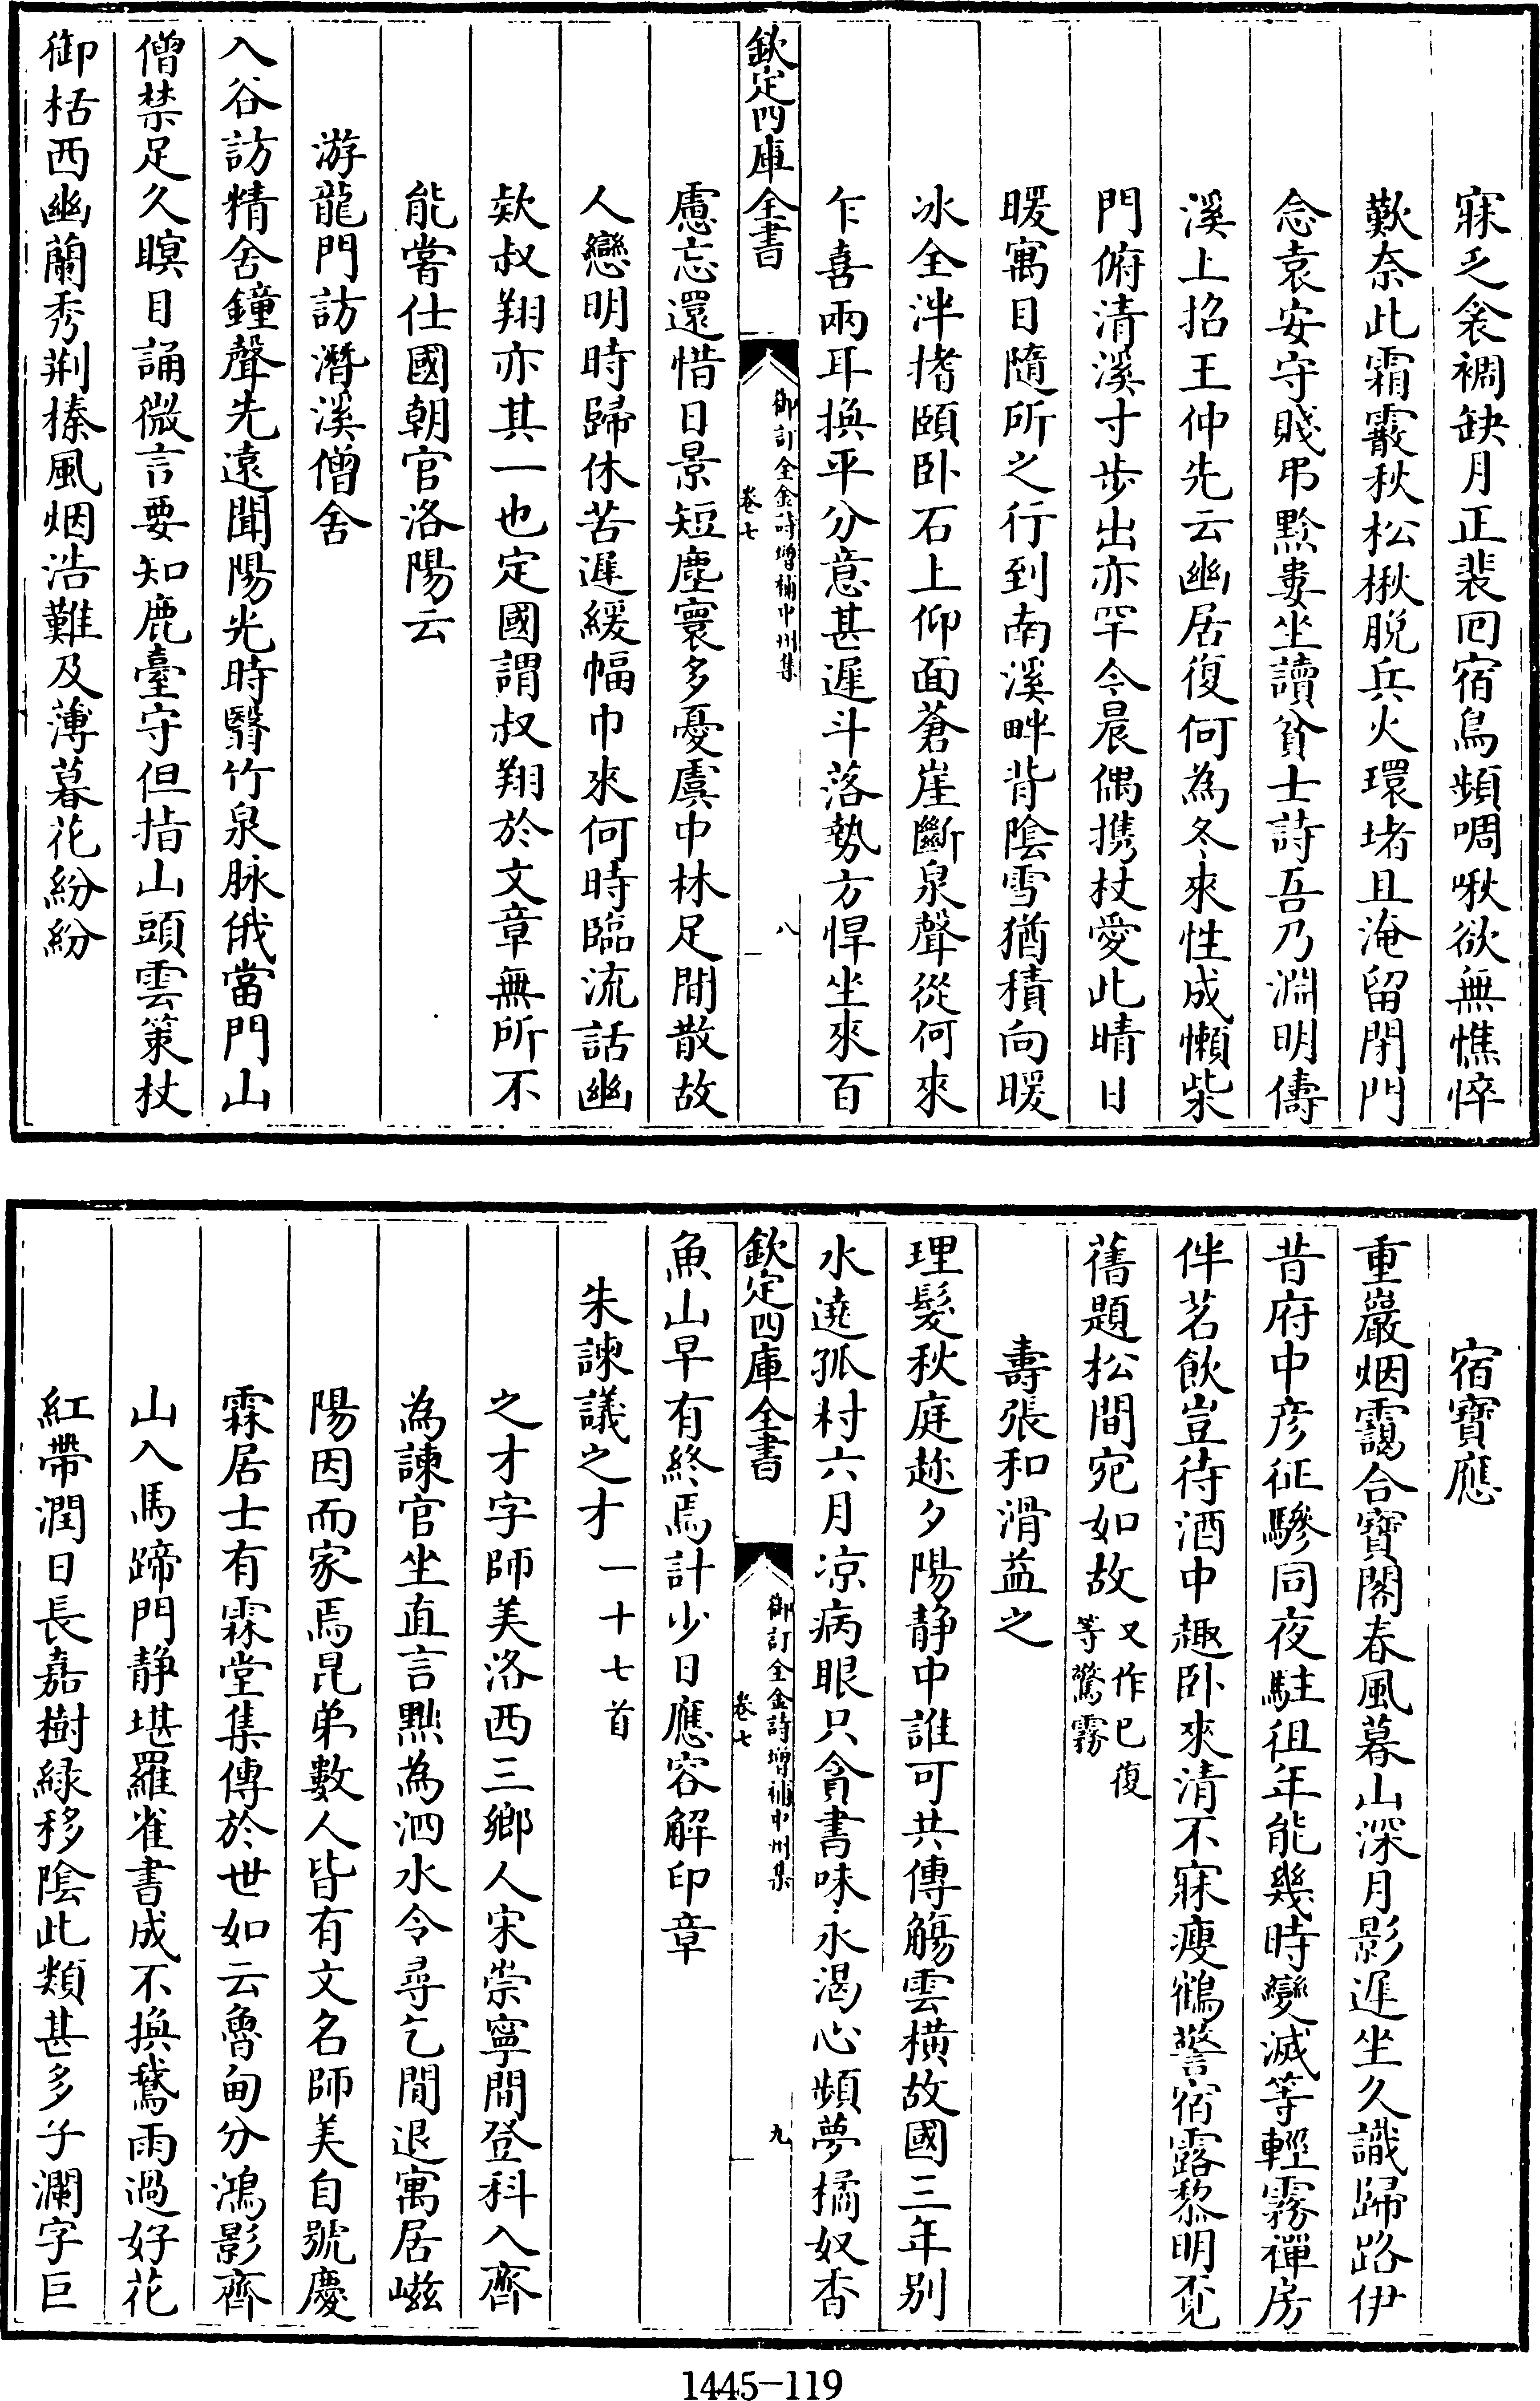 寐乏衾裯缺月正裴囘宿鳥頻啁啾欲無憔悴
歎奈此霜霰秋松楸脫兵火環堵且淹留閉門
念袁安守賤弔黔婁坐讀貧士詩吾乃淵明儔
溪上招王仲先云幽居復何為冬來性成懶柴
門俯清溪寸步出亦罕今晨偶携杖愛此晴日
暖寓目隨所之行到南溪畔背隂雪猶積向暖
冰全泮搘頤卧石上仰面蒼崖斷泉聲從何來
乍喜兩耳換平分意甚遲斗落勢方悍坐來百
欽定四庫全書
御訂全金詩增補中州集
卷七
八
慮忘還惜日景短塵寰多憂虞中林足閒散故
人戀明時歸休苦遲緩幅巾來何時臨流話幽
欵叔翔亦其一也定國謂叔翔於文章無所不
能嘗仕國朝官洛陽云
游龍門訪潛溪僧舍
入谷訪精舍鐘聲先遠聞陽光時翳竹泉脉俄當門山
僧禁足久瞑目誦微言要知鹿臺守但指山頭雲策杖
御枯西幽蘭秀荆榛風烟浩難及薄暮花紛紛
宿寶應
重巖烟靄合寶閣春風暮山深月影遲坐久識歸路伊
昔府中彦征驂同夜駐徂年能幾時變滅等輕霧禪房
伴茗飲豈待酒中趣卧來清不寐瘦鶴警宿露黎明覓
舊題松間宛如故又作已復
等驚霧
壽張和滑益之
理髮秋庭趂夕陽静中誰可共傳觴雲横故國三年别
水遶孤村六月凉病眼只貪書味永渴心頻夢橘奴香
欽定四庫全書
御訂全金詩增補中州集
卷七
九
魚山早有終焉計少日應容解印章
朱諫議之才一十七首
之才字師美洛西三鄉人宋崇寧間登科入齊
為諫官坐直言黜為泗水令尋乞閒退寓居嵫
陽因而家焉昆弟數人皆有文名師美自號慶
霖居士有霖堂集傳於世如云魯甸分鴻影齊
山入馬蹄門静堪羅雀書成不換鵞雨過好花
紅帶潤日長嘉樹緑移陰此類甚多子瀾字巨
1445-119